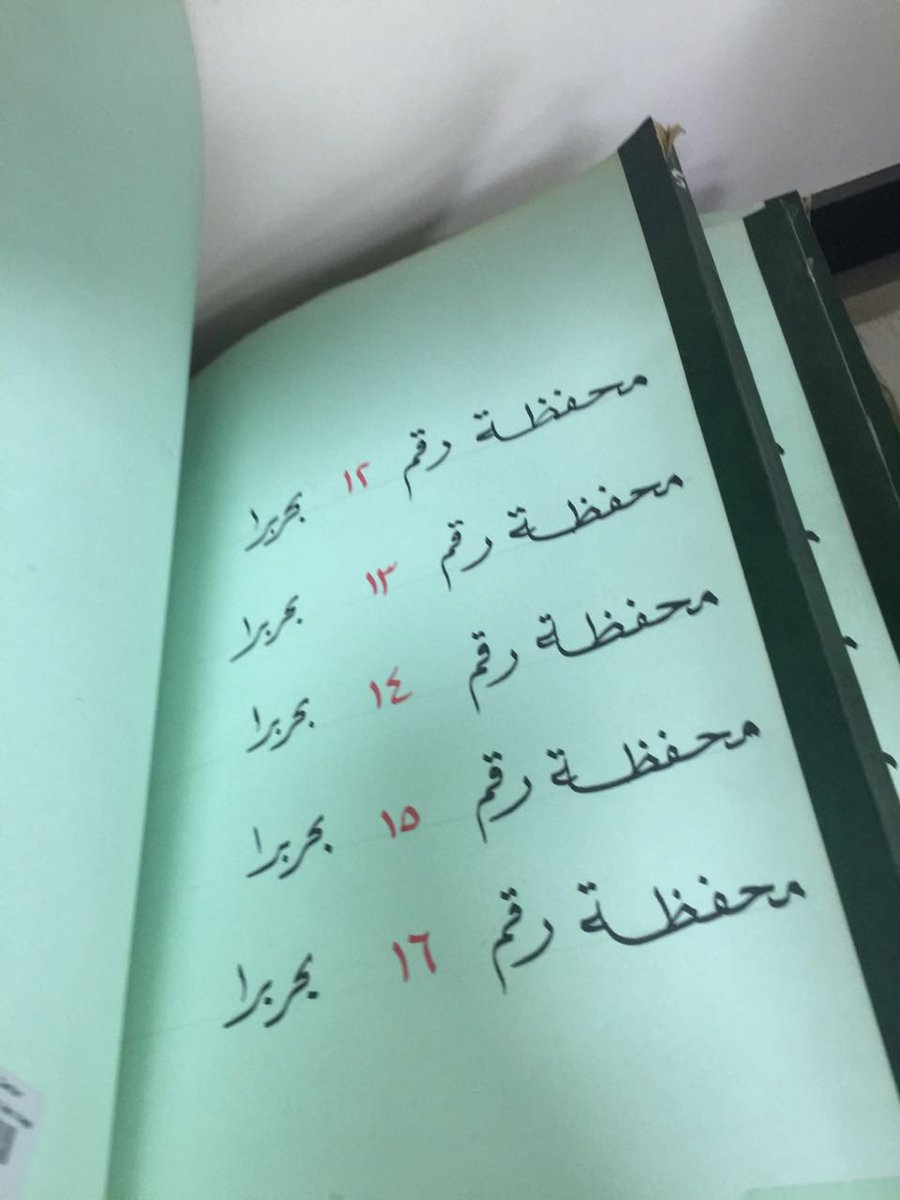 محفظة رقم ١٢ بحربرا
محفظة رقم ١٣ بحربرا
محفظة رقم ١٤ بحربرا
محفظة رقم ١٥ بحربرا
محفظة رقم ١٦ بحربرا